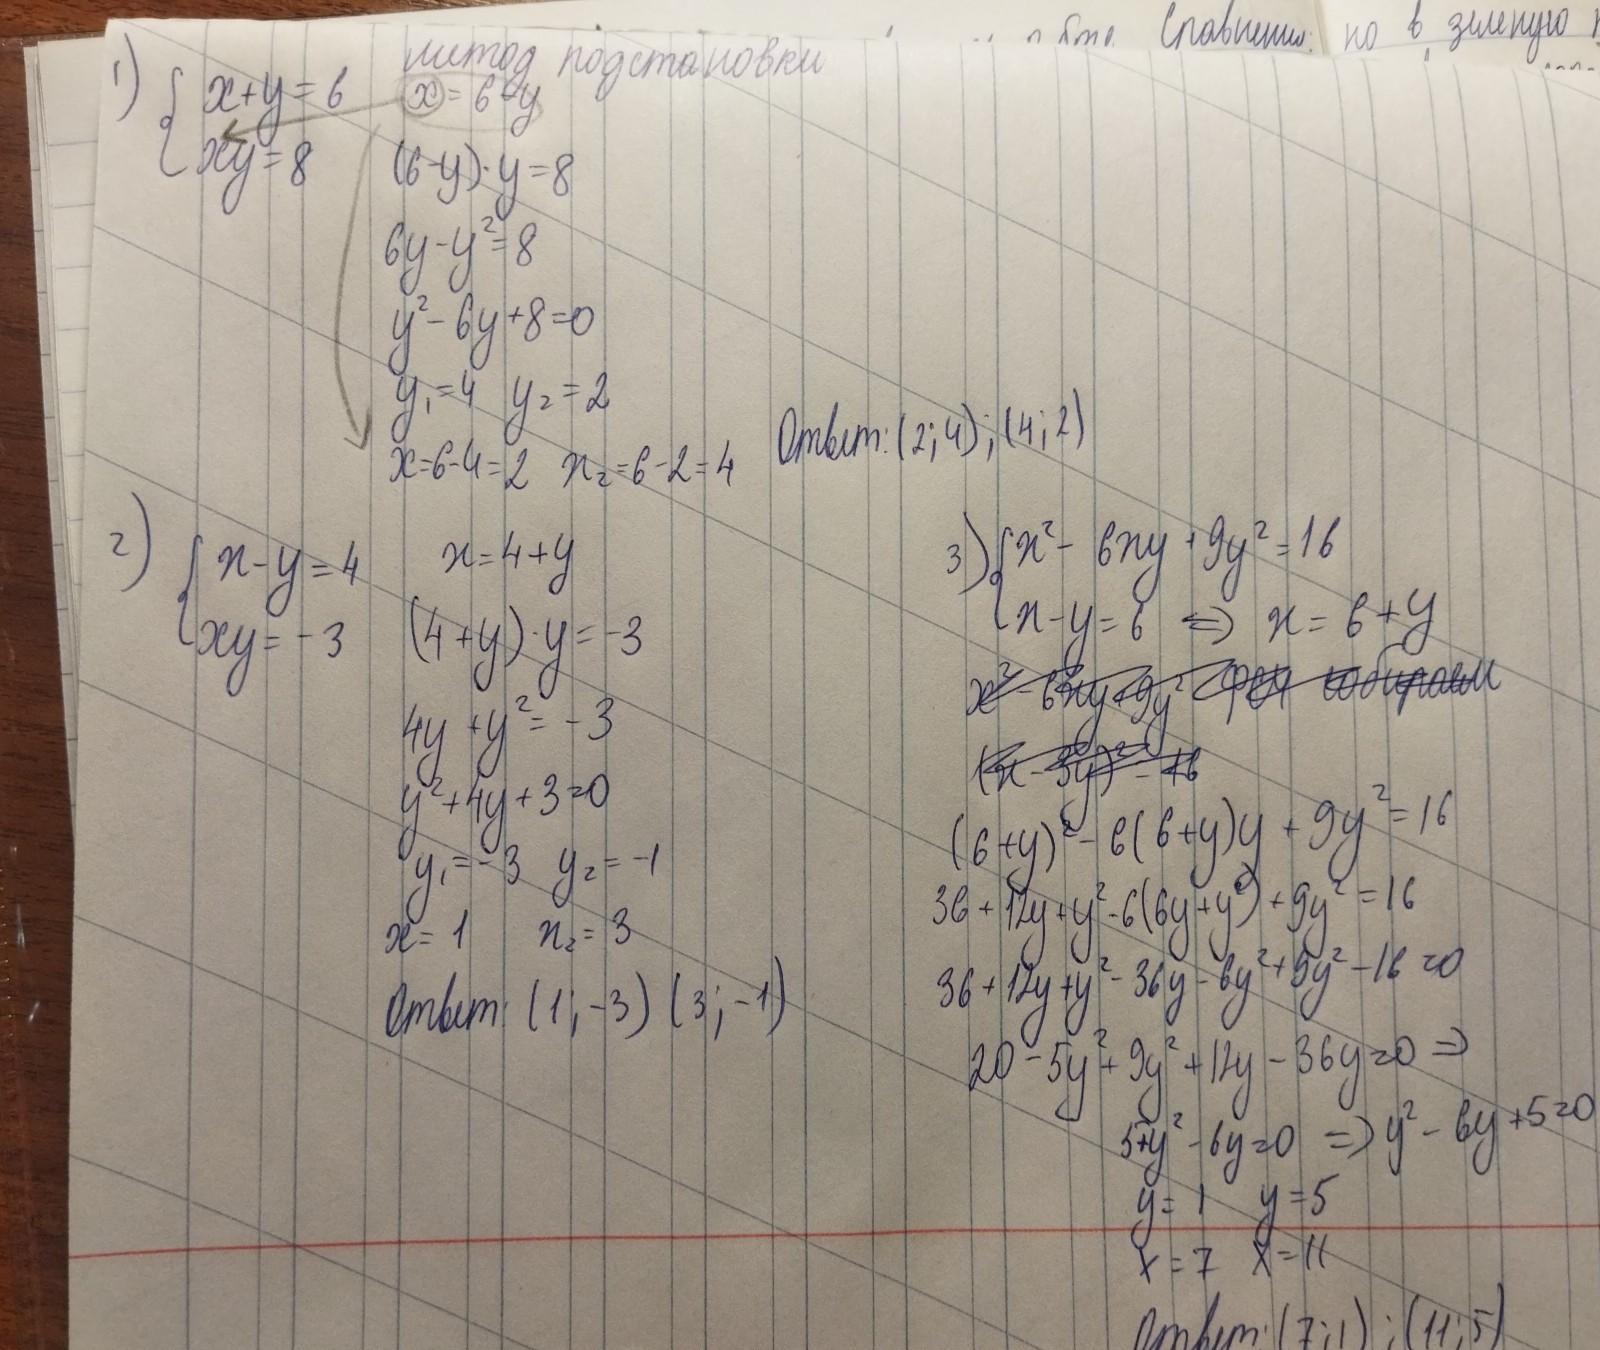 Сравнения: но в зеленую
метод подстановки
1) { x+y=6 x=6-y
xy=8 (6-y)·y=8
6y-y²=8
y²-6y+8=0
y₁=4 y₂=2
x=6-4=2 x₂=6-2=4 Ответ: (2;4);(4;2)
2) { x-y=4 x=4+y
xy=-3 (4+y)·y=-3
4y+y²=-3
y²+4y+3=0
y₁=-3 y₂=-1
x=1 x₂=3
Ответ: (1;-3) (3;-1)
3) { x²-6xy+9y²=16
x-y=6 => x=6+y
x²-6xy+9y² собираем
(x-3y)²-16
(6+y)²-6(6+y)y+9y²=16
36+12y+y²-6(6y+y²)+9y²=16
36+12y+y²-36y-6y²+9y²-16=0
20-5y²+9y²+12y-36y=0 =>
5+y²-6y=0 => y²-6y+5=0
y=1 y=5
x=7 x=11
Ответ: (7;1);(11;5)